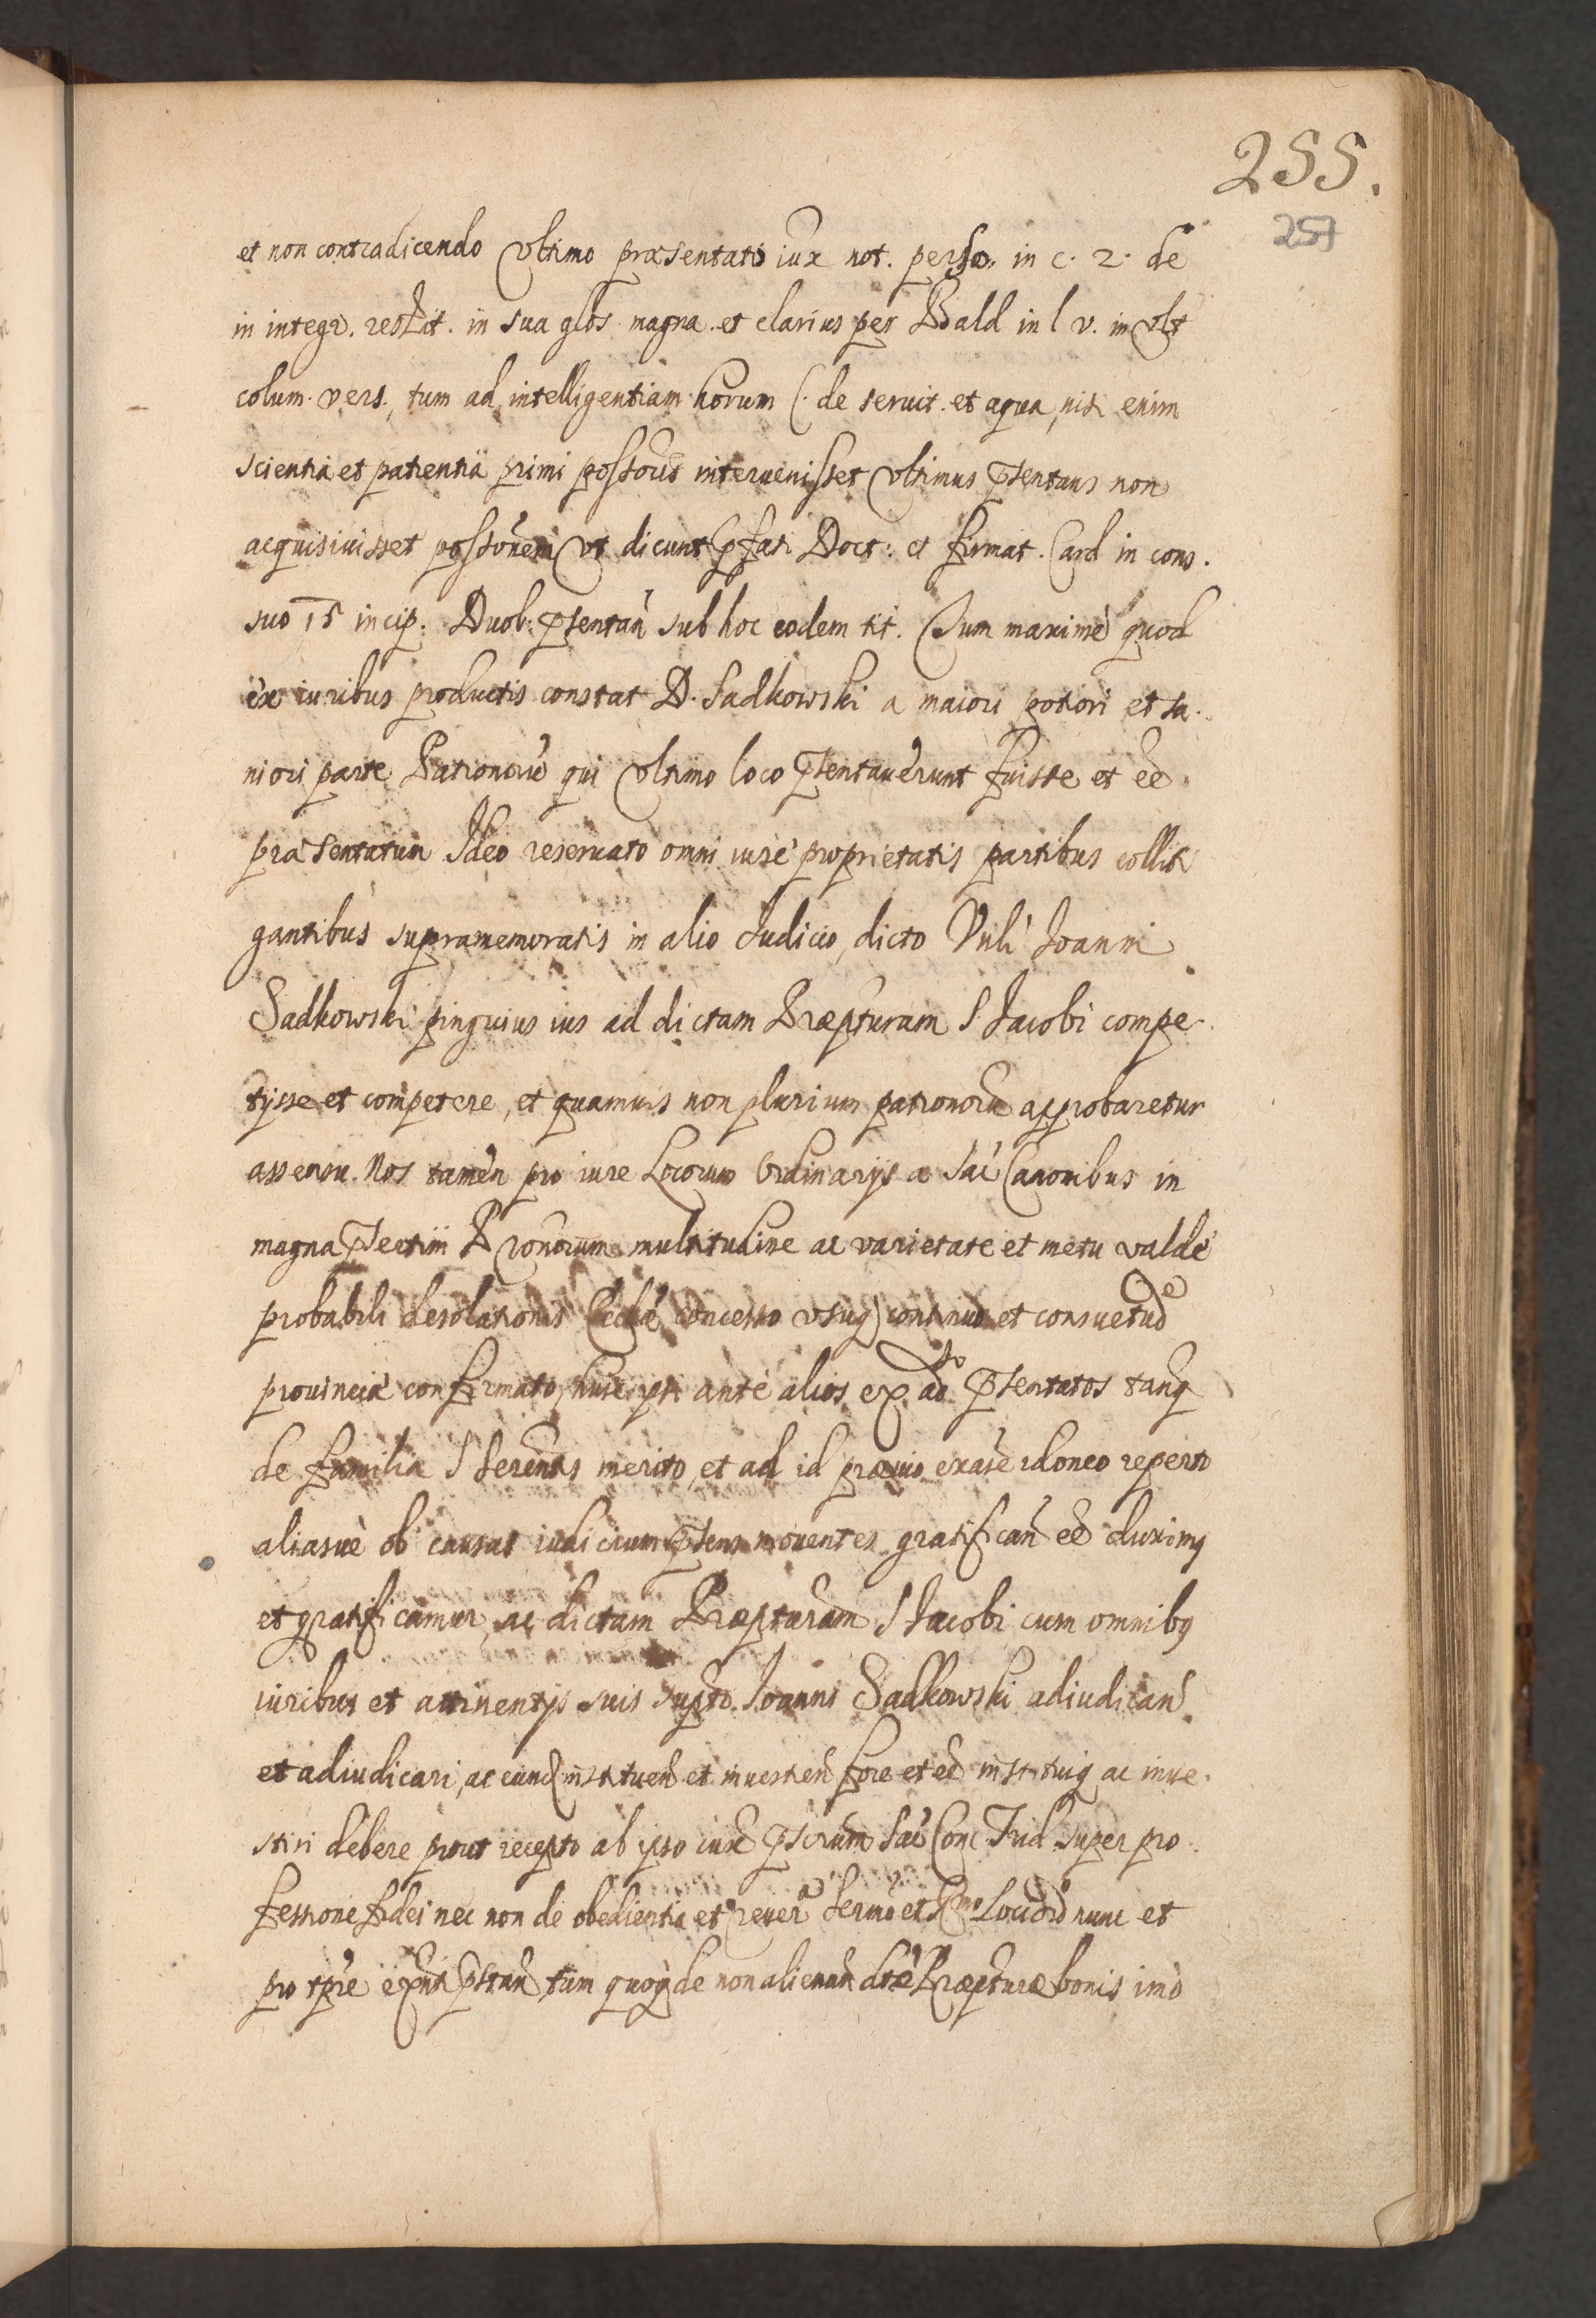 255.
257
et non contradicendo Vltimo præsentatis iux not. in c. 2. de
in integr. restit. in sua glos. magna et clarius per Bald in l v. in vlt
colum. vers. tum ad intelligentiam horum C. de seruit. et aqua, nisi enim
scientia et patientia primi possoris interuenisset Vltimus psentans non
acquisiuisset possonem Vt dicunt pfati Doct: et firmat Card in cons.
suo 15 incip. Duob. psentan sub hoc eodem tit. Cum maximè quod
ex iuribus productis constat D. Sadkowski a maiori potiori et sa
niori parte Patronorū qui Vltimo loco psentauerunt fuisse et eē
præsentatum Ideo reseruato omni iure proprietatis partibus colliti
gantibus supramemoratis in alio Iudicio, dicto Vnli Joanni
Sadkowski pinguius ius ad dictam Præpturam S Jacobi compe
tysse et competere, et quamuis non plurium patronorū approbaretur
assensu. Nos tamen pro iure Locorum Ordinarijs a Sac Canonibus in
magna psertim Pronorum multitudine ac varietate et metu valdè
probabili desolationis Ecclæ concesso vsuq continuo et consuetudē
prouinciæ confirmato, huic ipsi ante alios ex adto psentatos tanq
de familia S merito, et ad id præuio exañe idoneo reperto
aliasuè ob causas iudicium psens mouentes gratifican eē duximq
et gratificamur, ac dictam Præpturam S Jacobi cum omnibq
iuribus et attinentijs suis supto Joanni Sadkowski adiudicand
et adiudicari, ac eund instituend et inuestiend fore et eē instituiq ac inue
stiri debere prout recepto ab ipso iuxt pscrium Sac Conc Trid super pro
fessione fidei nec non de obedientia et reuer nunc et
pro tpre pstan tum quoq de non alienan dtæ Præpturæ bonis imò